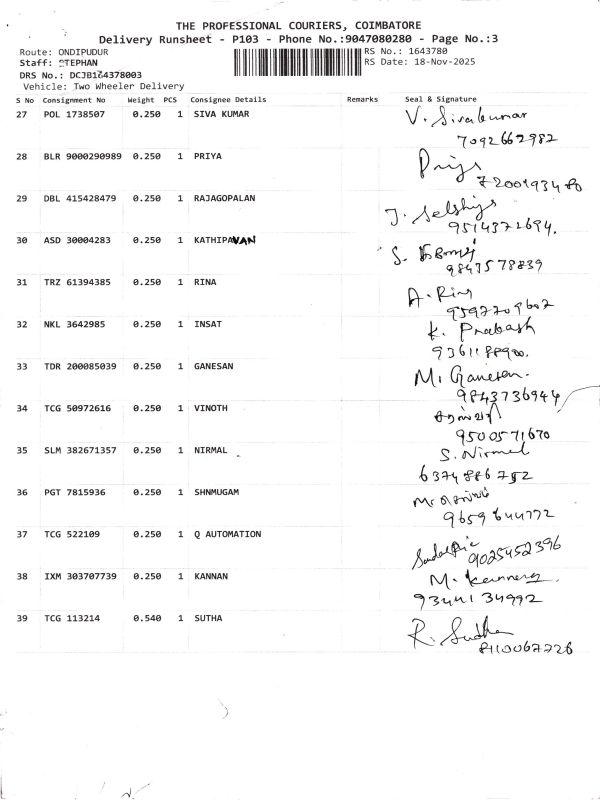 THE PROFESSIONAL COURIERS, COIMBATORE
Delivery Runsheet - P103 - Phone No.:9047080280 - Page No.:3
Route: ONDIPUDUR RS No.: 1643780
Staff: STEPHAN RS Date: 18-Nov-2025
DRS No.: DCJB164378003
Vehicle: Two Wheeler Delivery
S No Consignment No Weight PCS Consignee Details Remarks Seal & Signature
27 POL 1738507 0.250 1 SIVA KUMAR V. Sivakumar
7092662982
28 BLR 9000290989 0.250 1 PRIYA Priya
7200193480
29 DBL 415428479 0.250 1 RAJAGOPALAN J.
9514372694.
30 ASD 30004283 0.250 1 KATHIPAVAN S.
9843578839
31 TRZ 61394385 0.250 1 RINA A. Rina
9597709602
32 NKL 3642985 0.250 1 INSAT K. Prabash
33 TDR 200085039 0.250 1 GANESAN M. Ganesan.
9843736944
34 TCG 50972616 0.250 1 VINOTH
9500571670
35 SLM 382671357 0.250 1 NIRMAL S. Nirmal
6374886752
36 PGT 7815936 0.250 1 SHNMUGAM
9659644772
37 TCG 522109 0.250 1 Q AUTOMATION
9025452396
38 IXM 303707739 0.250 1 KANNAN M. Kannan
9344134992
39 TCG 113214 0.540 1 SUTHA R. Sudha
8110067226